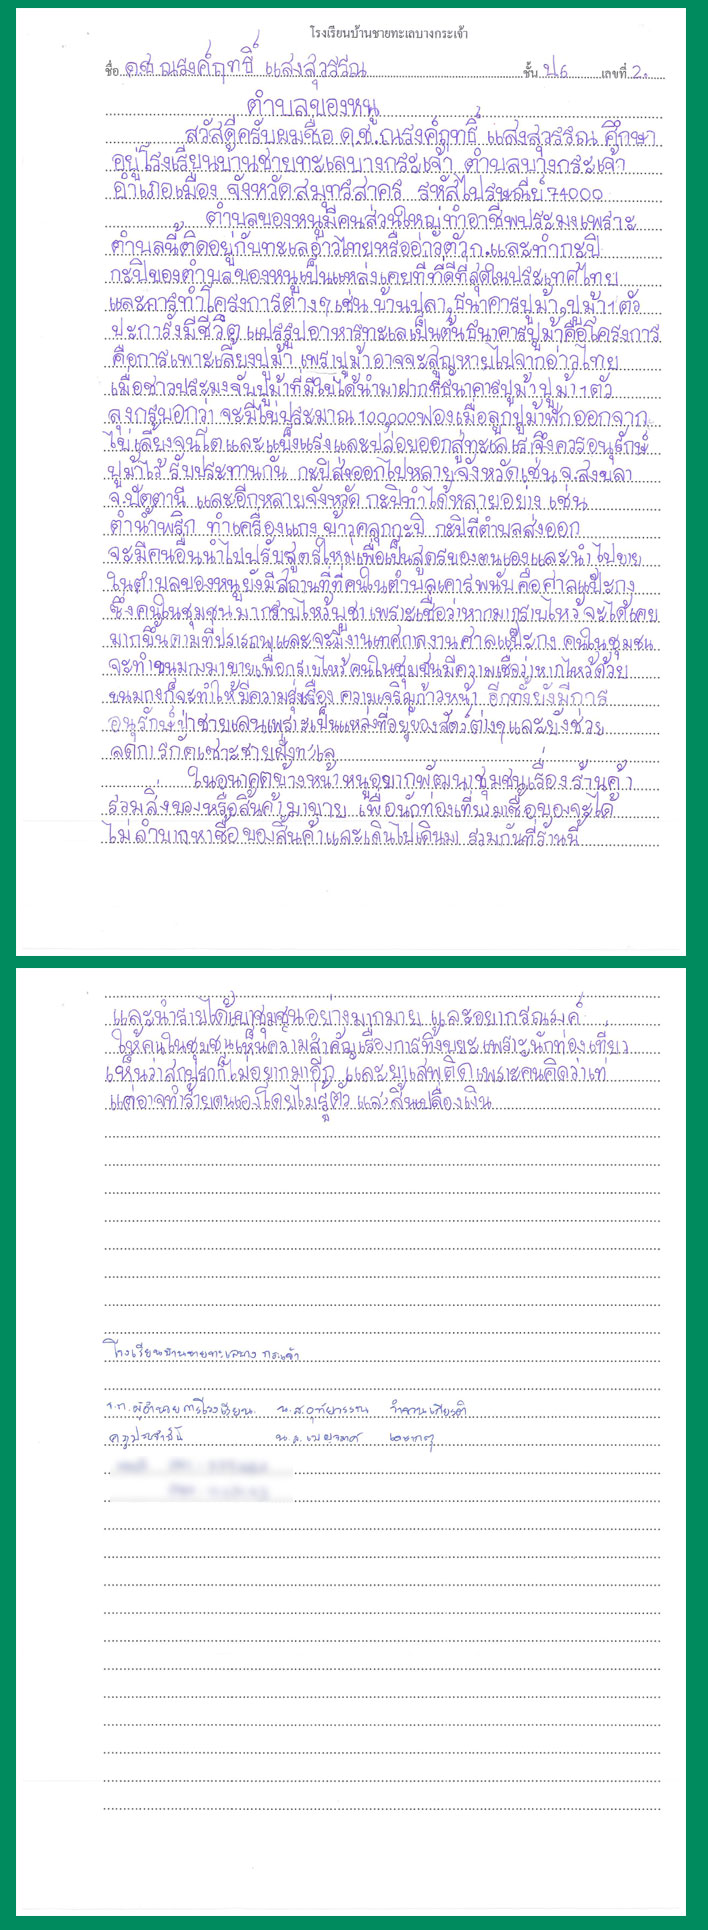 โรงเรียนบ้านชายทะเลบางกระเจ้า
ชื่อ ด.ช. ณรงค์ฤทธิ์ แสงสุวรรณ ชั้น ป.6 เลขที่ 2.
ตำบลของหนู
สวัสดีครับผมชื่อ ด.ช.ณรงค์ฤทธิ์ แสงสุวรรณ ศึกษา
อยู่โรงเรียนบ้านชายทะเลบางกระเจ้า ตำบลบางกระเจ้า
อำเภอเมือง จังหวัดสมุทรสาคร รหัสไปรษณีย์ 74000
ตำบลของหนูมีคนส่วนใหญ่ทำอาชีพประมงเพราะ
ตำบลนี้ติดอยู่กับทะเลอ่าวไทยหรืออ่าวตัวก.และทำกะปิ
กะปิของตำบลของหนูเป็นแหล่งเคยทีที่ดีที่สุดในประเทศไทย
และการทำโครงการต่างๆเช่น บ้านปลา,ธนาคารปูม้า,ปูม้า1ตัว
ปะการังมีชีวิต แปรรูปอาหารทะเลเป็นต้นธนาคารปูม้าคือโครงการ
คือการเพาะเลี้ยงปูม้า เพราปูม้าอาจจะสูญหายไปจากอ่าวไทย
เมื่อชาวประมงจับปูม้าที่มีไข่ได้นำมาฝากที่ธนาคารปูม้า ปูม้า1ตัว
ลุงกรบอกว่า จะมีไข่ประมาณ 100,000ฟองเมื่อลูกปูม้าฟักออกจาก
ไข่เลี้ยงจนโตและแข็งแรงและปล่อยออกสู่ทะเลเราจึงควรอนุรักษ์
ปูม้าไว้รับประทานกัน กะปิส่งออกไปหลายจังหวัดเช่น จ.สงขลา
จ.ปัตตานี และอีกหลายจังหวัด กะปิทำได้หลายอย่าง เช่น
ตำน้ำพริก ทำเครื่องแกง ข้าวคลุกกะปิ กะปิที่ตำบลส่งออก
จะมีคนอื่นนำไปปรับสูตรใหม่เพื่อเป็นสูตรของตนเองและนำไปขาย
ในตำบลของหนูยังมีสถานที่ที่คนในตำบลเคารพนับคือศาลแป๊ะกง
ซึ่งคนในชุมชนมากราบไหว้บูชาเพราะเชื่อว่าหากมากราบไหว้จะได้เคย
มากขึ้นตามที่ปรารถนาและจะมีงานเทศกาลงานศาลแป๊ะกง คนในชุมชน
จะทำขนมกงมาขายเพื่อกราบไหว้คนในชุมชนมีความเชื่อว่าหากไหว้ด้วย
ขนมกงก็จะทำให้มีความรุ่งเรือง ความเจริญก้าวหน้า อีกทั้งยังมีการ
อนุรักษ์ป่าชายเลนเพราะเป็นแหล่งที่อยู่ของสัตว์ต่างๆและยังช่วย
ลดการกัดเซาะชายฝั่งทะเล
ในอนาคตข้างหน้าหนูอยากพัฒนาชุมชนเรื่องร้านค้า
รวมสิ่งของหรือสินค้ามาขาย เพื่อนักท่องเที่ยวมาซื้อของจะได้
ไม่ลำบากหาซื้อของสินค้าและเดินไปเดินมา รวมกันที่ร้านนี้
และนำรายได้เข้าชุมชนอย่างมากมาย และอยากรณรงค์
ให้คนในชุมชนเห็นความสำคัญเรื่องการทิ้งขยะเพราะนักท่องเที่ยว
เห็นว่าสกปรกก็ไม่อยากมาอีก และยาเสพติดเพราะคนคิดว่าเท่
แต่อาจทำร้ายตนเองโดยไม่รู้ตัว และสิ้นเปลืองเงิน
โรงเรียนบ้านชายทะเลบางกระเจ้า
ร.ก.ผู้อำนวยการโรงเรียน. น.ส.อุทัยวรรณ
ครูประจำชั้น น.ส.